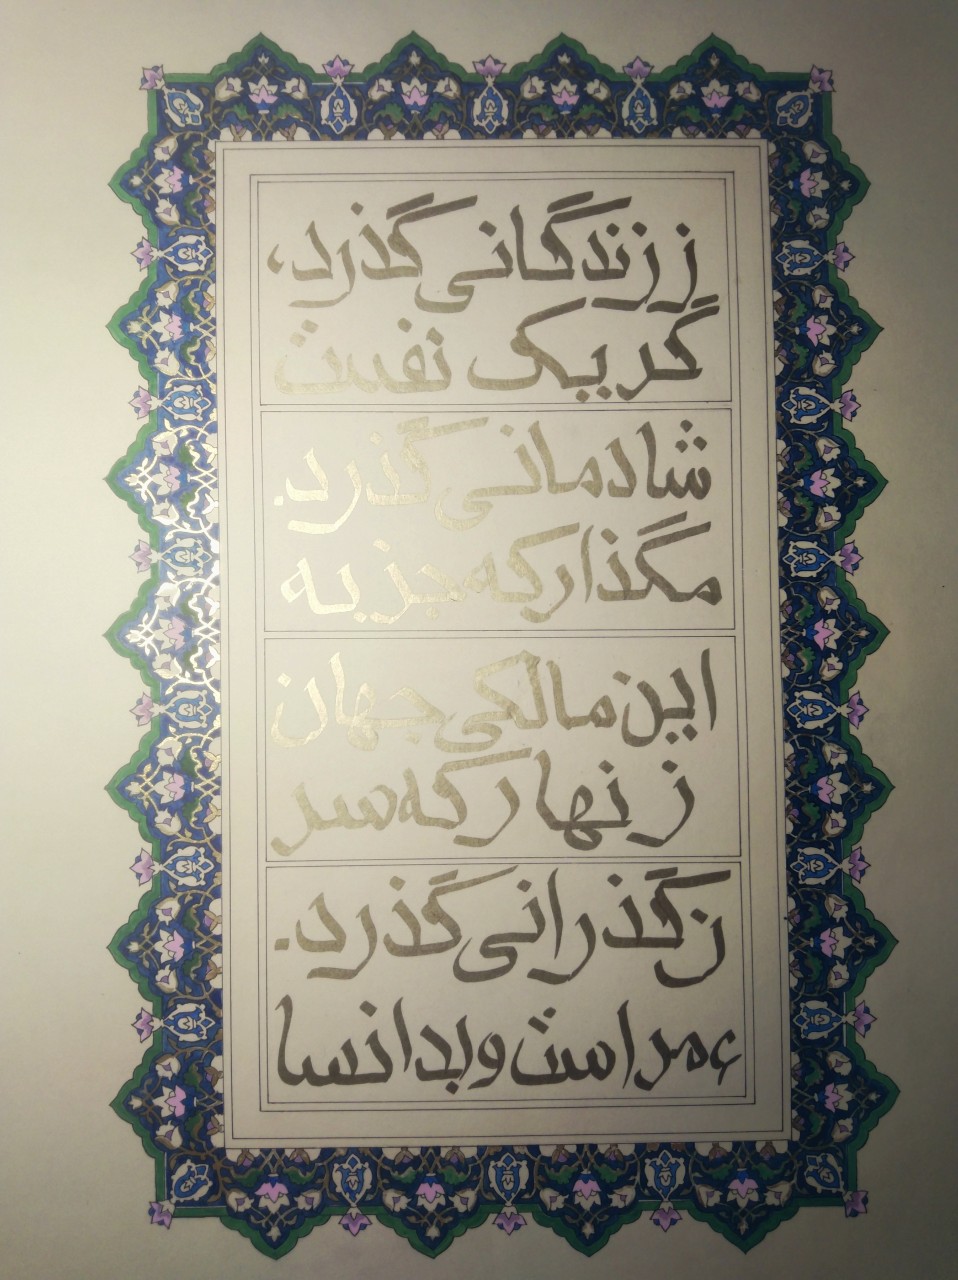 ز زندگانی گذرد،
گر یک نفست
شادمانی گذرد.
مگذار که جز به
این مالکی جهان
زنهار که سر
ز گذرانی گذرد.
عمر است و بدانسا